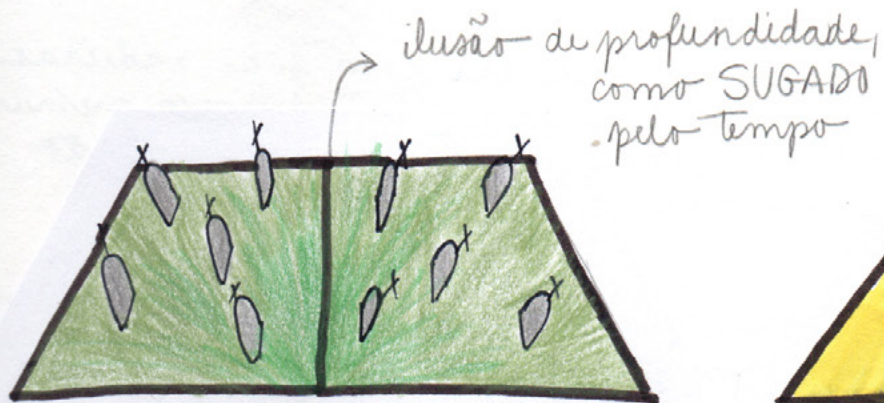 ilusão de profundidade,
como SUGADO
pelo tempo